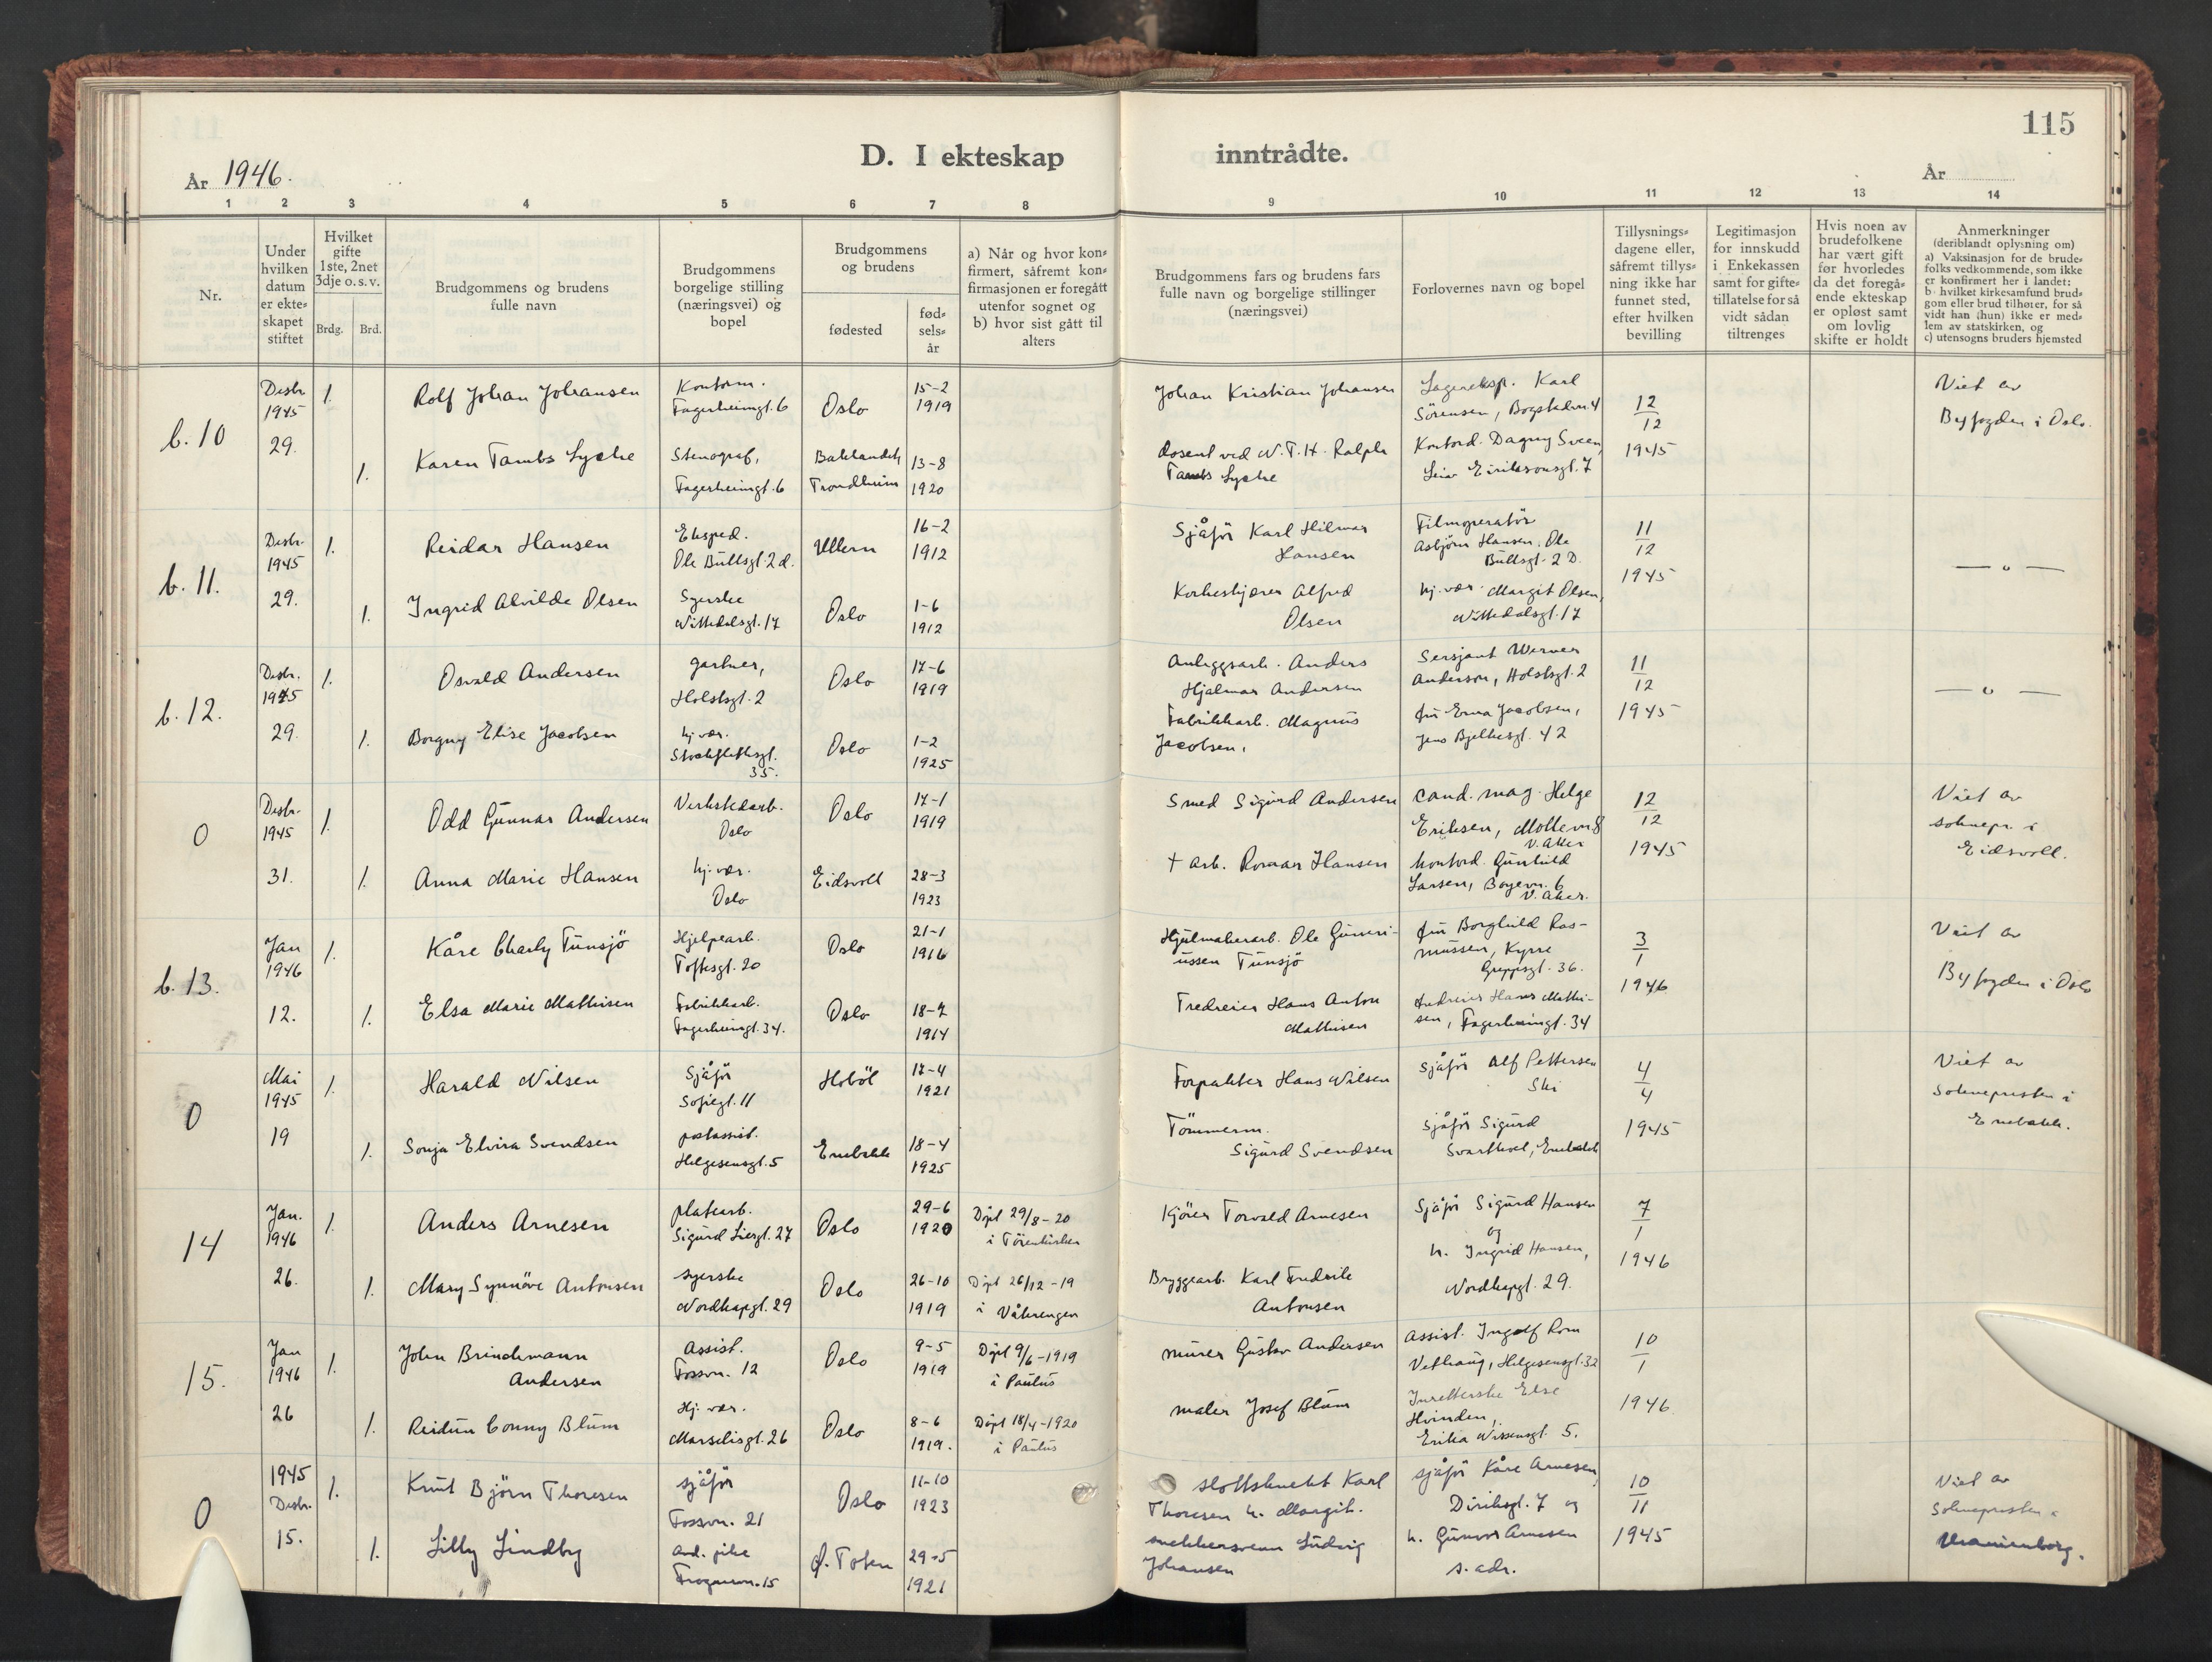 115
D. I ekteskap inntrådte.
År 1946.
År
1 2 3 4 5 6 7 8 9 10 11 12 13 14
Nr.
Under hvilken datum er ekte= skapet stiftet
Hvilket gifte 1ste, 2net 3dje o. s. v.
Brdg. Brd.
Brudgommens og brudens fulle navn
Brudgommens borgelige stilling (næringsvei) og bopel
Brudgommens og brudens
fødested
fød= sels= år
a) Når og hvor kon= firmert, såfremt kon= firmasjonen er foregått utenfor sognet og b) hvor sist gått til alters
Brudgommens fars og brudens fars fulle navn og borgelige stillinger (næringsvei)
Forlovernes navn og bopel
Tillysnings= dagene eller, såfremt tillys= ning ikke har funnet sted, efter hvilken bevilling
Legitimasjon for innskudd i Enkekassen samt for gifte= tillatelse for så vidt sådan tiltrenges
Hvis noen av brudefolkene har vært gift før hvorledes da det foregå= ende ekteskap er opløst samt om lovlig skifte er holdt
Anmerkninger (deriblandt oplysning om) a) Vaksinasjon for de brude= folks vedkommende, som ikke er konfirmert her i landet: b hvilket kirkesamfund brud= gom eller brud tilhører, for så vidt han (hun) ikke er med= lem av statskirken, og c) utensogns bruders hjemsted
b. 10
Desbr 1945 29.
1. Rolf Johan Johansen
Kontorm. Fagerheimgt. 6
Oslo
15-2 1919
Johan Kristian Johansen
Lagereksp. Karl Sörensen, Bogstadvn. 4
12/12 1945
Viet av Byfogden i Oslo.
1. Karen Tambs Lyche
Stenograf, Fagerheimgt. 6
Baklandet Trondheim
13-8 1920
dosent ved N.T.H. Ralph Tambs Lyche
Kontord. Dagny Sveen, Leiv Eirikssonsgt. 7
b. 11.
Desbr. 1945 29.
1. Reidar Hansen
Eksped. Ole Bullsgt. 2 d.
Ullern
16-2 1912
Sjåför Karl Hilmar Hansen
Filmoperatör Asbjörn Hansen, Ole Bullsgt. 2 D.
11/12 1945
— " —
1. Ingrid Alvilde Olsen
Syerske Nittedalsgt. 17
Oslo
1-6 1912
Korkeskjærer Alfred Olsen
hj. vær. Margit Olsen, Nittedalsgt. 17
b. 12.
Desbr. 1945 29.
1. Osvald Andersen
gartner, Holstsgt. 2
Oslo
17-6 1919
Anleggsarb. Anders Hjalmar Andersen
Sersjant Werner Anderson, Holstsgt. 2
11/12 1945
— " —
1. Borgny Elise Jacobsen
hj. vær. Stockflethsgt. 35.
Oslo
1-2 1925
Fabrikkarb. Magnus Jacobsen,
fru Erna Jacobsen, Jens Bjelkesgt. 42
0
Desbr. 1945 31.
1. Odd Gunnar Andersen
Verkstedarb. Oslo
Oslo
17-1 1919
Smed Sigurd Andersen
cand. mag. Helge Eriksen, Mollevn 8 V. Aker
12/12 1945
Viet av soknepr. i Eidsvoll.
1. Anna Marie Hansen
hj. vær. Oslo
Eidsvoll
28-3 1923
+ arb. Roman Hansen
kontord. Gunhild Larsen, Bøyevn. 6 V. Aker.
b. 13.
Jan 1946 12.
1. Kåre Charly Tunsjö
Hjelpearb. Toftesgt. 20
Oslo
21-1 1916
Hjulmakerarb. Ole Guneri- ussen Tunsjö
fru Borghild Ras- mussen, Kyrre Greppsgt. 36.
3/1 1946
Viet av Byfogden i Oslo
1. Elsa Marie Mathisen
Fabrikkarb. Fagerheimgt. 34.
Oslo
18-7 1914
Tredreier Hans Anton Mathisen
tredreier Hans Mathi- sen, Fagerheimgt. 34
0
Mai 1945 19
1. Harald Nilsen
Sjåför Sofiegt. 11
Hobøl
17-4 1921
Forpakter Hans Nilsen
Sjåför Alf Pettersen Ski
4/4 1945
Viet av Soknepresten i Enebakk.
1. Sonja Elvira Svendsen
postassist. Helgesensgt. 5
Enebakk
18-4 1925
Tömmerm. Sigurd Svendsen
Sjåför Sigurd Svarthol, Enebakk
14
Jan. 1946 26.
1. Anders Arnesen
platearb. Sigurd Liesgt. 27
Oslo
29-6 1920
Döpt 29/8-20 i Töienkirken
Kjörer Torvald Arnesen
Sjåför Sigurd Hansen og h. Ingrid Hansen, Nordkapgt. 29.
7/1 1946
1. Mary Synnöve Antonsen
syerske Nordkapgt. 29
Oslo
26-10 1919
Döpt 26/12-19 i Vålerengen
Bryggearb. Karl Fredrik Antonsen
15.
Jan 1946 26
1. John Brinchmann Andersen
Assist. Fossvn. 12
Oslo
9-5 1919
Döpt 9/6-1919 i Paulus
murer Gustav Andersen
Assist. Ingolf Rom Vethaug, Helgesensgt. 32
10/1 1946
1. Reidun Conny Blum
Hj. vær. Marselisgt. 26
Oslo
8-6 1919.
Döpt 18/4-1920 i Paulus
maler Josef Blum
Innretterske Else Hvinden, Erika Nissensgt. 5.
0
1945 Desbr. 15.
1. Knut Björn Thoresen
sjåför Fossvn. 21
Oslo
11-10 1923
slottsknekt Karl Thoresen h. Margit.
sjåför Kåre Arnesen, Diriksgt. 7 og h. Gunvor Arnesen s. adr.
10/11 1945
Viet av Soknepresten i Uranienborg.
1. Lilly Lindby
And. pike Frognervn. 15
Ø. Toten
29-5 1921
snekkersvenn Ludvig Johansen